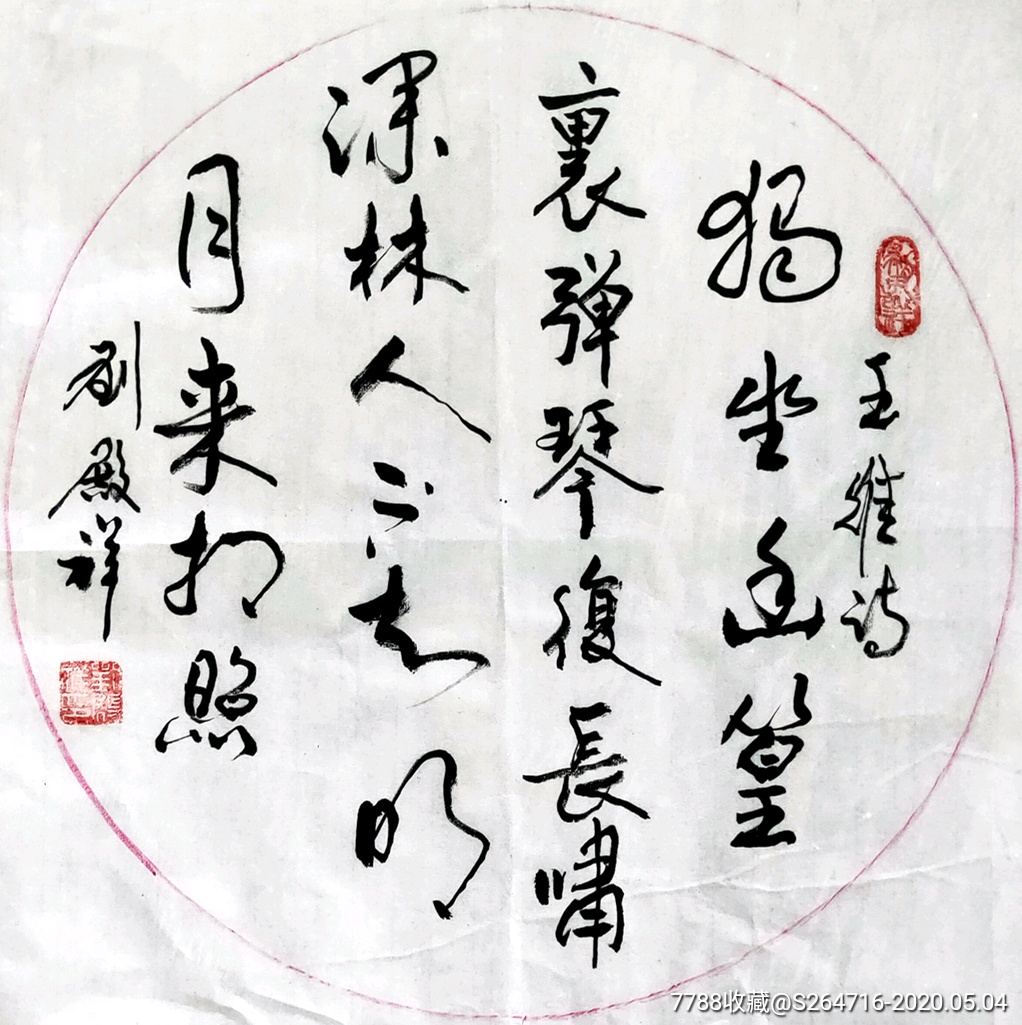 王維诗
獨坐幽篁
裏弹琴復長嘯
深林人不知明
月来相照
劉殿祥
7788收藏@S264716-2020.05.04